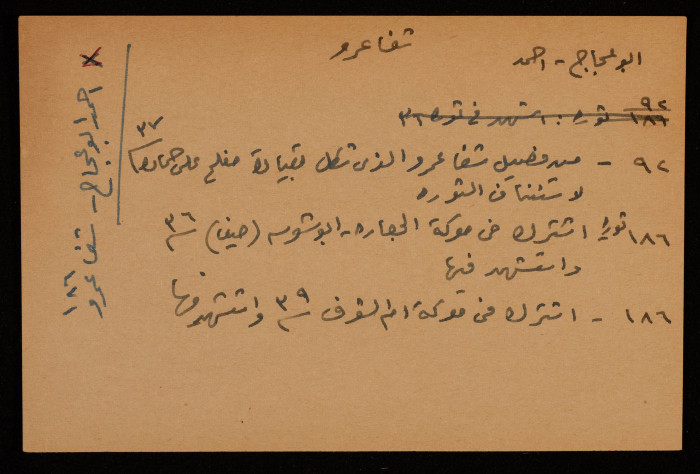 شفا عمرو
ابو عجاج - احمد
٩٢
١٨٦ ثورة : استشهد في ثورة ٣٦
٩٢ - من فصيل شفا عمرو الذي تشكل بقيادة مفلح علي حمادة ٣٧
لاستئناف الثورة
١٨٦ ثورة اشترك في معركة الجعاره - ابو شوشه (حيفا) ٣٦
واستشهد فيها
١٨٦ - اشترك في معركة ام الشوف ٣٩ واستشهد فيها
X احمد ابو عجاج - شفا عمرو
١٨٦